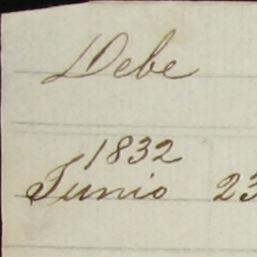 Debe
1832
Junio 23